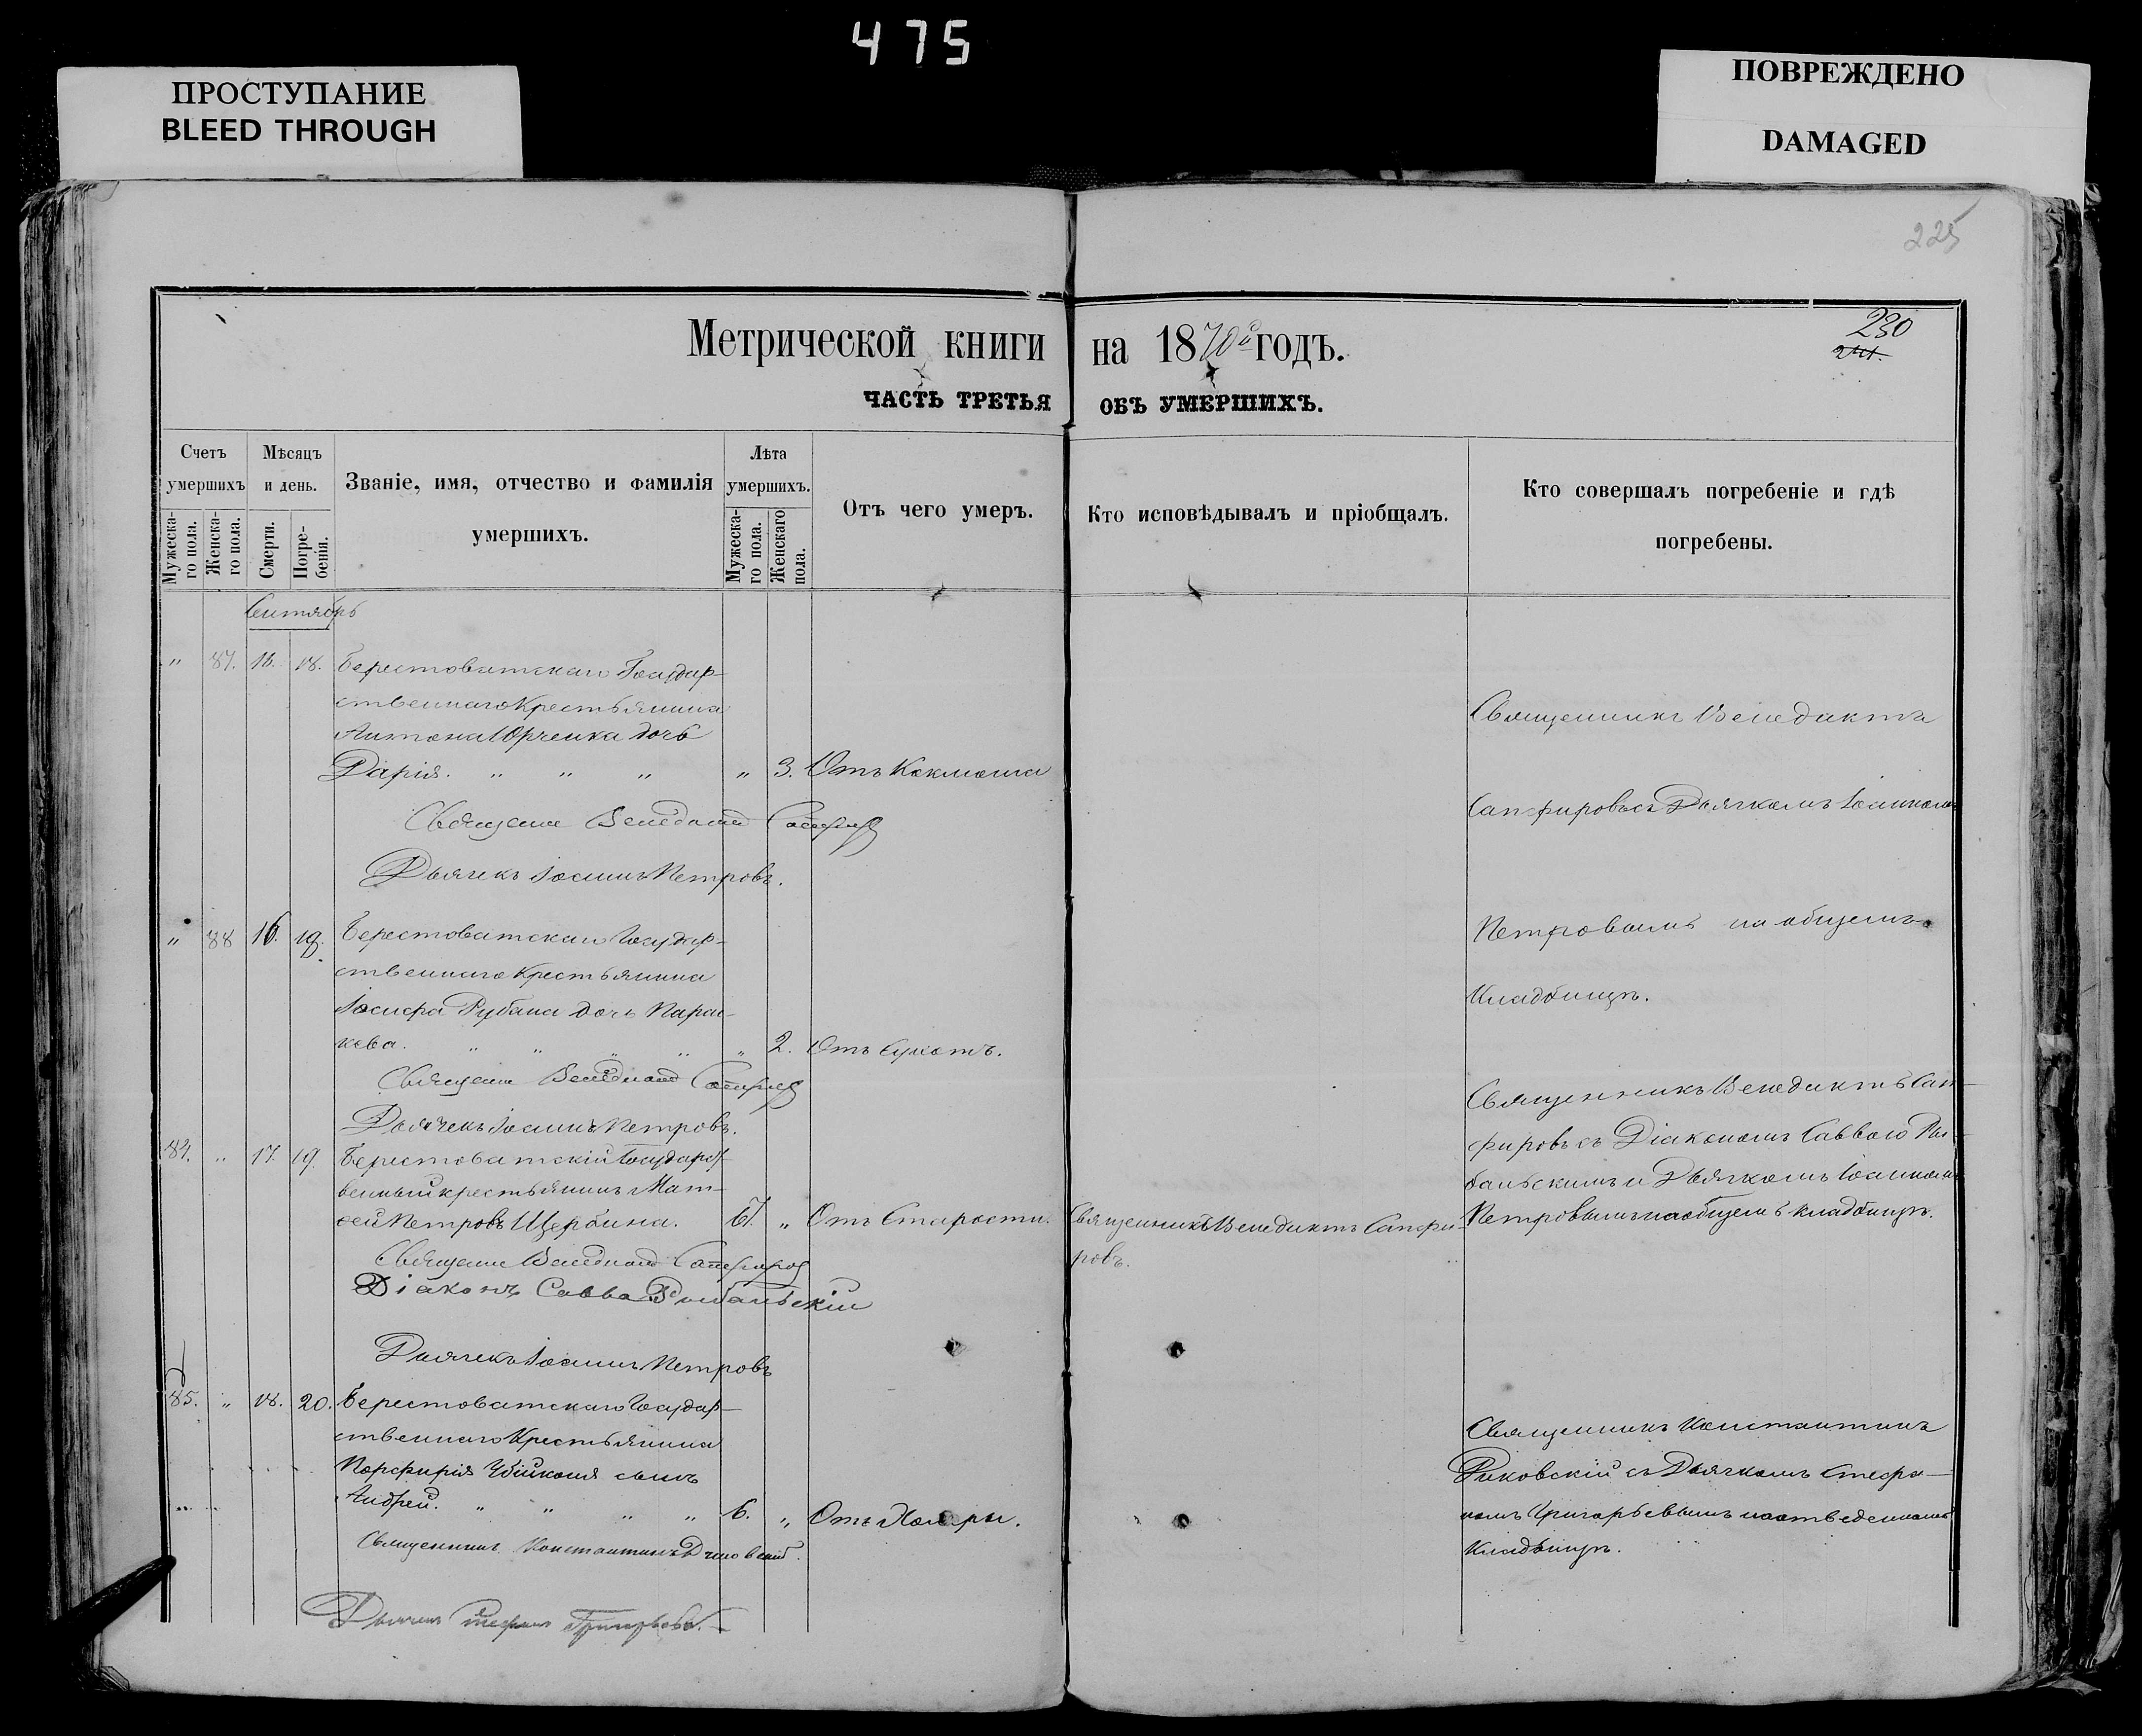 475
ПРОСТУПАНИЕ
BLEED THROUGH
ПОВРЕЖДЕНО
DAMAGED
225
Метрической книги на 1870й годъ.
230
ЧАСТЬ ТРЕТЬЯ ОБЪ УМЕРШИХЪ.
Счетъ умершихъ
Мужеска-го пола.
Женска-го пола.
Мѣсяцъ и день.
Смерти.
Погре-бенія.
Званіе, имя, отчество и фамилія умершихъ.
Лѣта умершихъ.
Мужеска-го пола.
Женскаго пола.
Отъ чего умеръ.
Кто исповѣдывалъ и пріобщалъ.
Кто совершалъ погребеніе и гдѣ погребены.
Сентябрь
" 87. 16. 18. Берестоватскаго Государ-
ственнаго Крестьянина
Антона Юрченка дочь
Дарія. " " " " 3. Отъ Коклюша
Священникъ Венедиктъ
Сапфировъ съ Дьячкомъ Іоанномъ
Петровымъ на общемъ
Кладбищѣ.
Священник Венедиктъ Сапфиров
Дьячекъ Іоаннъ Петровъ.
" 88 16. 18. Берестоватскаго Государ-
ственнаго Крестьянина
Іосифа Рубана дочь Парас-
кева. " " " " " 2. Отъ Сухотъ.
Священник Венедиктъ Сапфиров
Дьячекъ Іоаннъ Петровъ.
84. " 17. 19. Берестоватскій Государст-
венный крестьянинъ Мат-
ѳей Петровъ Щербина. 67. " Отъ Старости.
Священникъ Венедиктъ Сапфи-
ровъ.
Священникъ Венедиктъ Сап-
фировъ съ Діакономъ Саввою Ры-
бальскимъ и Дьячкомъ Іоанномъ
Петровымъ на общемъ кладбищѣ.
Священник Венедиктъ Сапфиров
Діаконъ Савва Рыбальскій
Дьячекъ Іоаннъ Петровъ
85. " 18. 20. Берестоватскаго Государ-
ственнаго Крестьянина
Порфирія сынъ
Андрей. " " " " 6. " Отъ Холеры.
Священникъ Константинъ
съ Дьячкомъ Стефа-
номъ Григорьевымъ на отведенномъ
Кладбищѣ.
Священникъ Константинъ
Дьячекъ Стефанъ Григорьевъ.